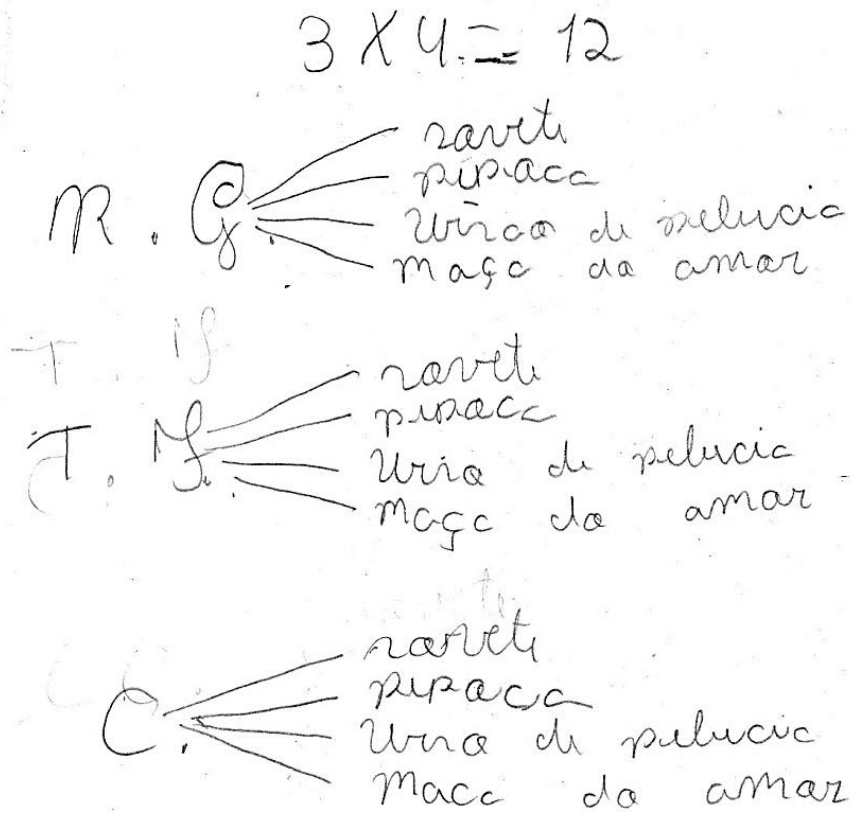 3 X 4 = 12
R. G.
sorvete
pipoca
Urso de pelucia
Maça do amor
T. M
T. M.
sorvete
pipoca
Urso de pelucia
Maça do amor
C.
sorvete
pipoca
Urso de pelucia
Maca do amor